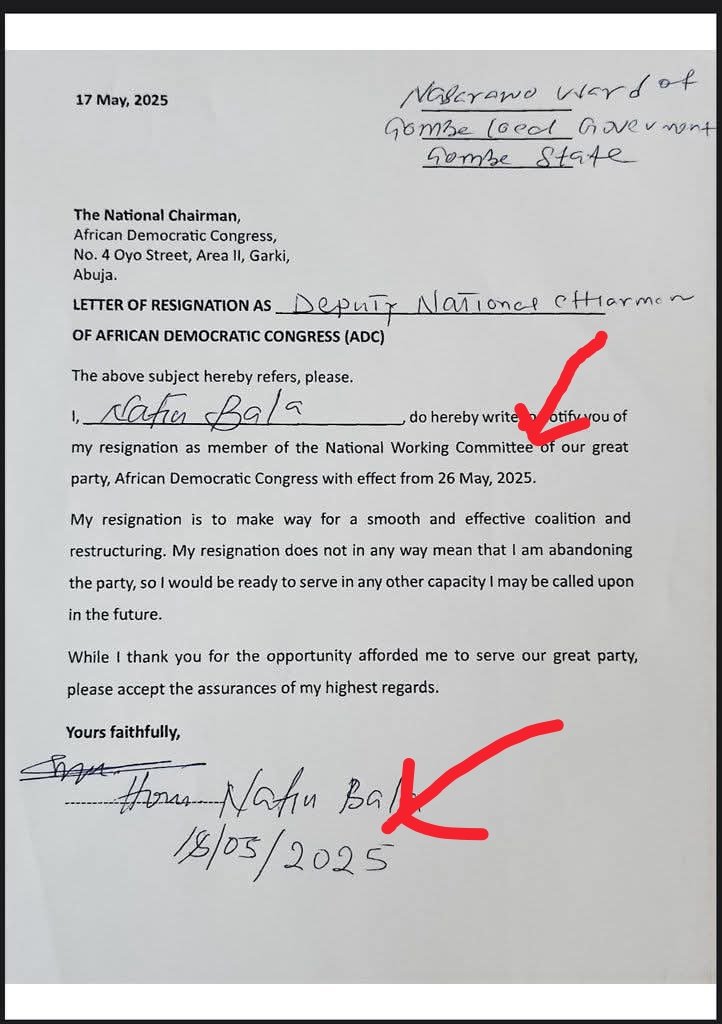 17 May, 2025
Nasarawo Ward of
Gombe Local Goverment
Gombe State
The National Chairman,
African Democratic Congress,
No. 4 Oyo Street, Area II, Garki,
Abuja.
LETTER OF RESIGNATION AS Deputy National Chairman
OF AFRICAN DEMOCRATIC CONGRESS (ADC)
The above subject hereby refers, please.
I, Nafiu Bala, do hereby write you of
my resignation as member of the National Working Committee of our great
party, African Democratic Congress with effect from 26 May, 2025.
My resignation is to make way for a smooth and effective coalition and
restructuring. My resignation does not in any way mean that I am abandoning
the party, so I would be ready to serve in any other capacity I may be called upon
in the future.
While I thank you for the opportunity afforded me to serve our great party,
please accept the assurances of my highest regards.
Yours faithfully,
Hon Nafiu Bala
18/05/2025